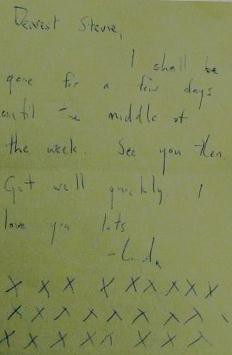 Dearest Stevie,
I shall be
gone for a few days
until the middle of
the week. See you then
Get well quickly. I
love you lots
- Linda
X X X X X X X X X
X X X X X X X X X
X X X X X X X X